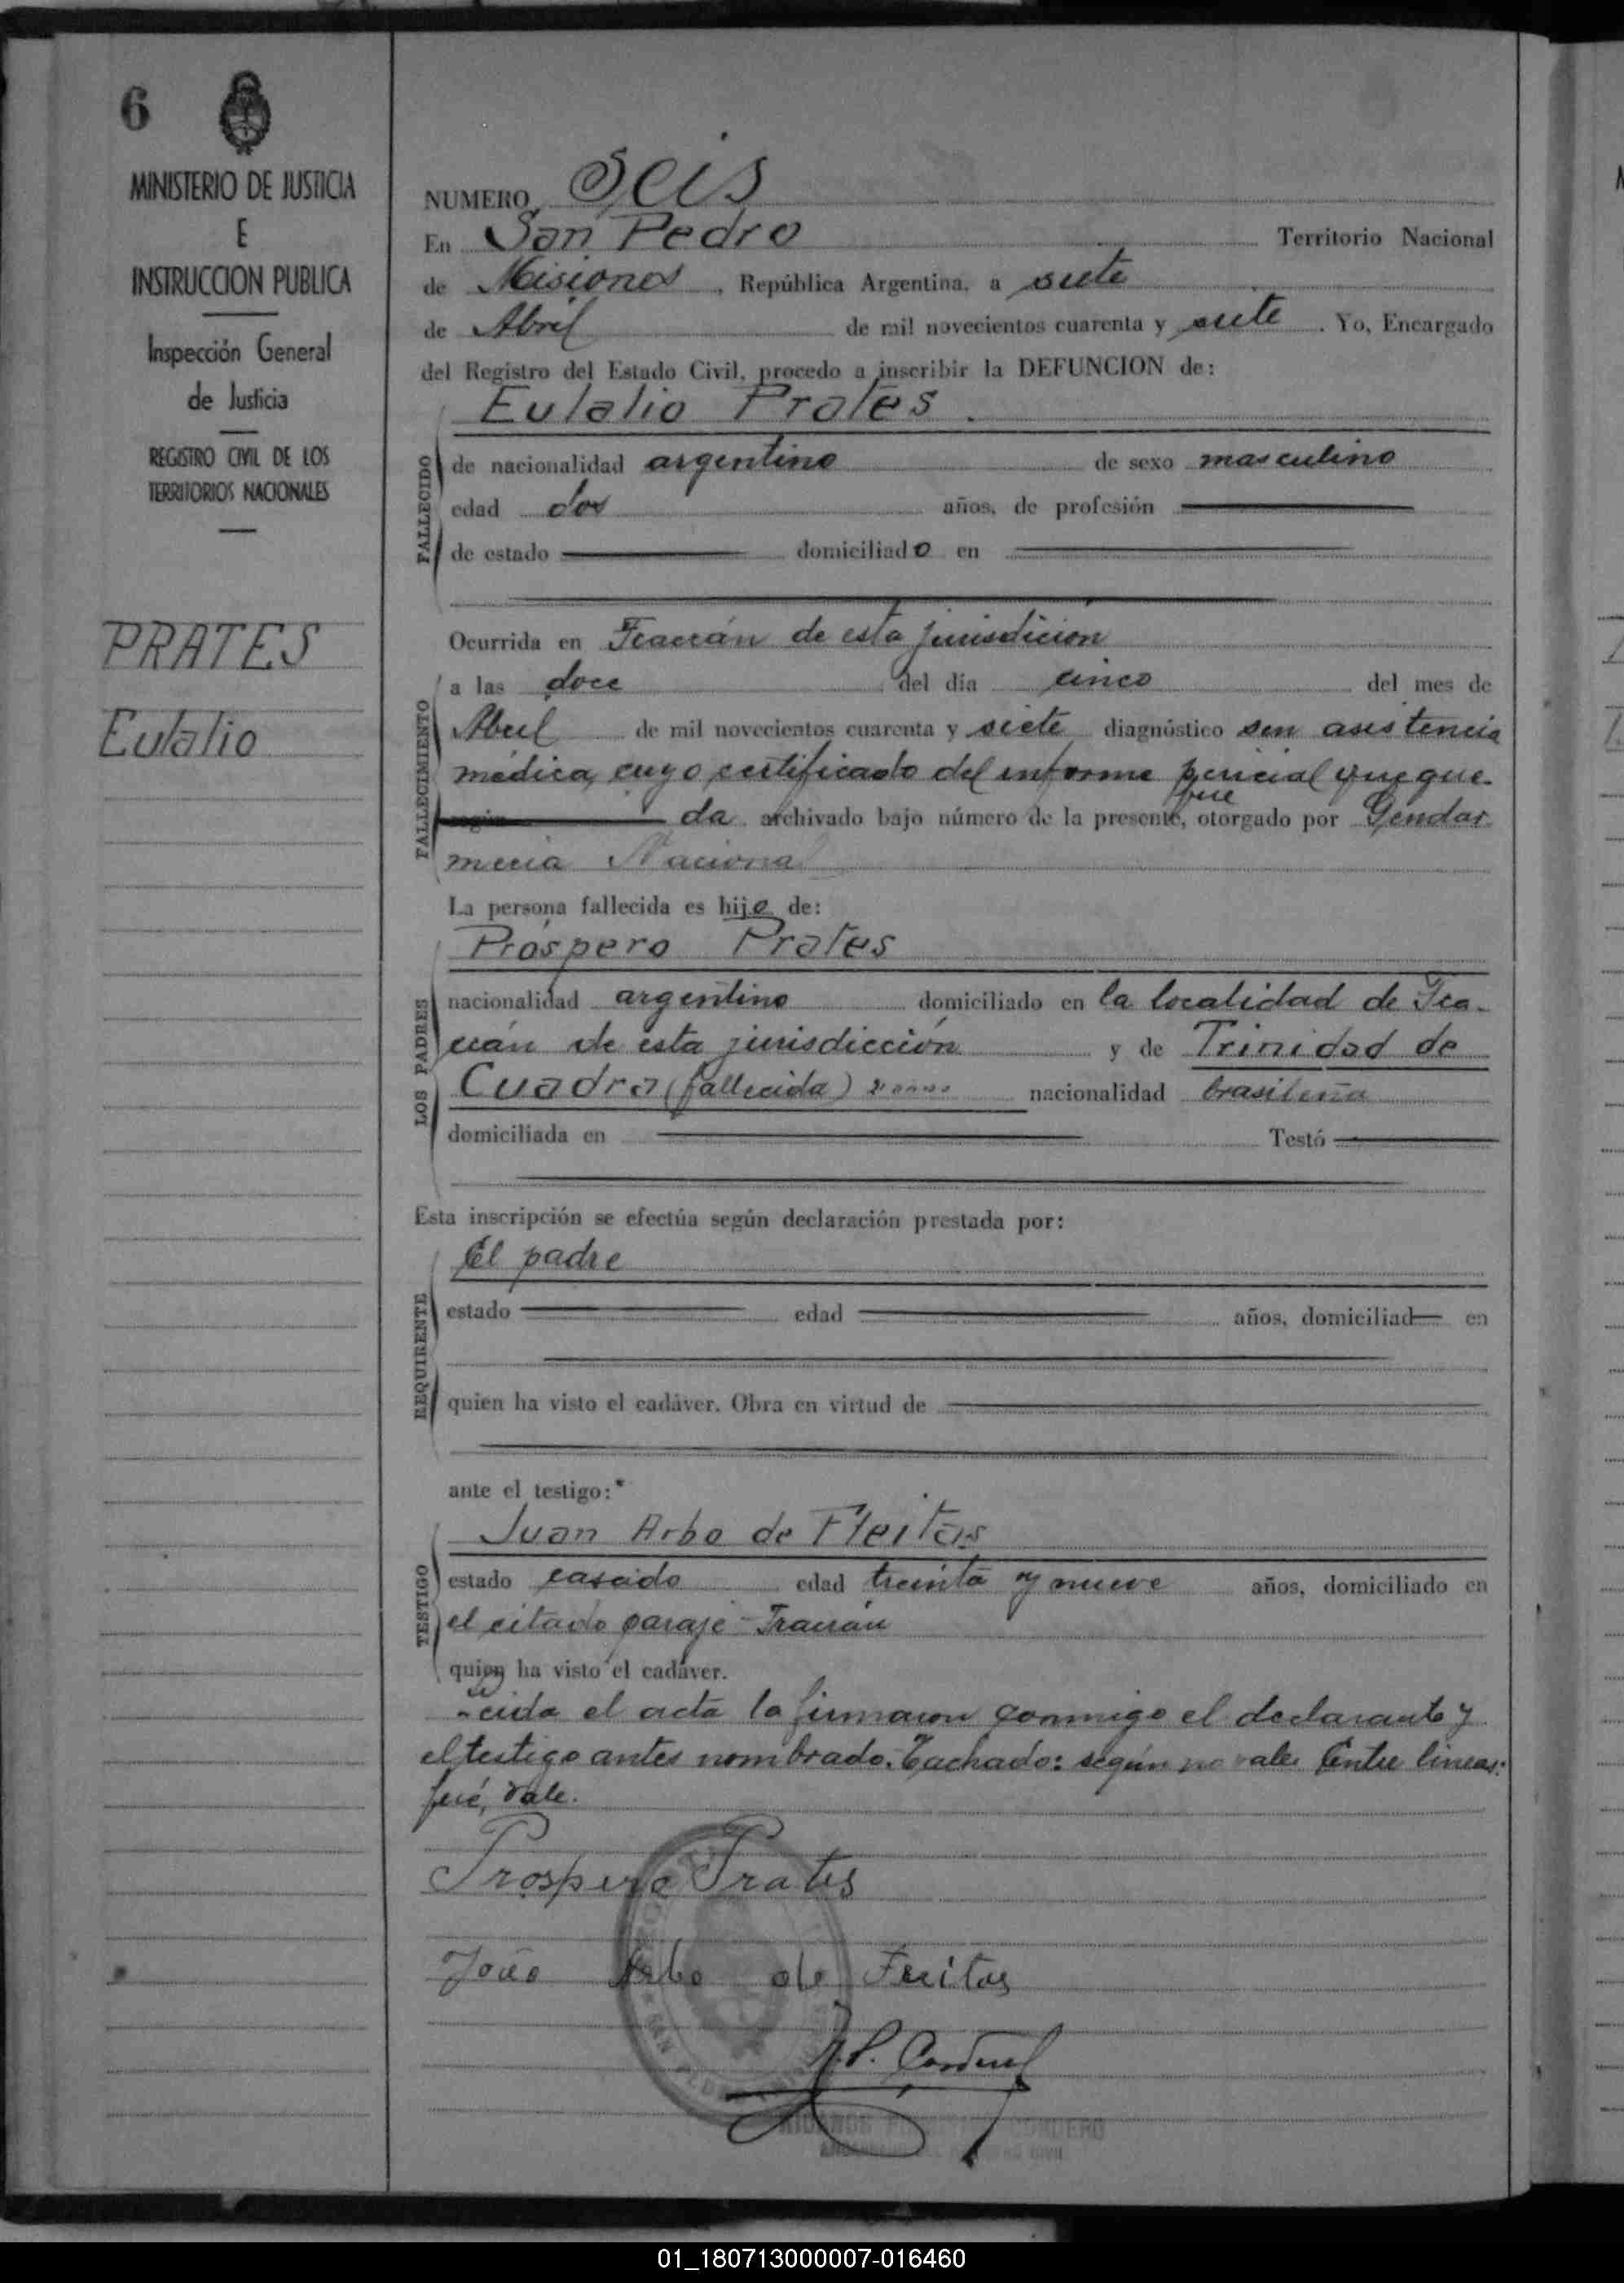 6
MINISTERIO DE JUSTICIA
E
INSTRUCCION PUBLICA
Inspección General
de Justicia
REGISTRO CIVIL DE LOS
TERRITORIOS NACIONALES
PRATES
Eulalio
NUMERO Seis
En San Pedro Territorio Nacional
de Misiones, República Argentina, a siete
de Abril de mil novecientos cuarenta y siete. Yo, Encargado
del Registro del Estado Civil, procedo a inscribir la DEFUNCION de:
Eulalio Prates.
FALLECIDO
de nacionalidad argentino de sexo masculino
edad dos años, de profesión
de estado domiciliado en
Ocurrida en Fracrán de esta jurisdicion
FALLECIMIENTO
a las doce del día cinco del mes de
Abril de mil novecientos cuarenta y siete diagnóstico sin asistencia
médica, cuyo certificado del informe pericial que que-
fué
según da archivado bajo número de la presente, otorgado por Gendar
meria Nacional
La persona fallecida es hijo de:
Próspero Prates
LOS PADRES
nacionalidad argentino domiciliado en la localidad de Fra-
crán de esta jurisdicción y de Trinidad de
Cuadra (fallecida) nacionalidad brasileña
domiciliada en Testó
Esta inscripción se efectúa según declaración prestada por:
El padre
REQUIRENTE
estado edad años, domiciliad en
quien ha visto el cadáver. Obra en virtud de
ante el testigo:
Juan Arbo de Fleitas
TESTIGO
estado casado edad treinta y nueve años, domiciliado en
el citado paraje - Fracrán
quien ha visto el cadáver.
Leida el acta la firmaron conmigo el declarante y
el testigo antes nombrado. Tachado: según no vale. Entre lineas:
fué, vale.
Prospero Prates
João Arbo de Freitas
SAN PEDRO
CORDERO
01_180713000007-016460